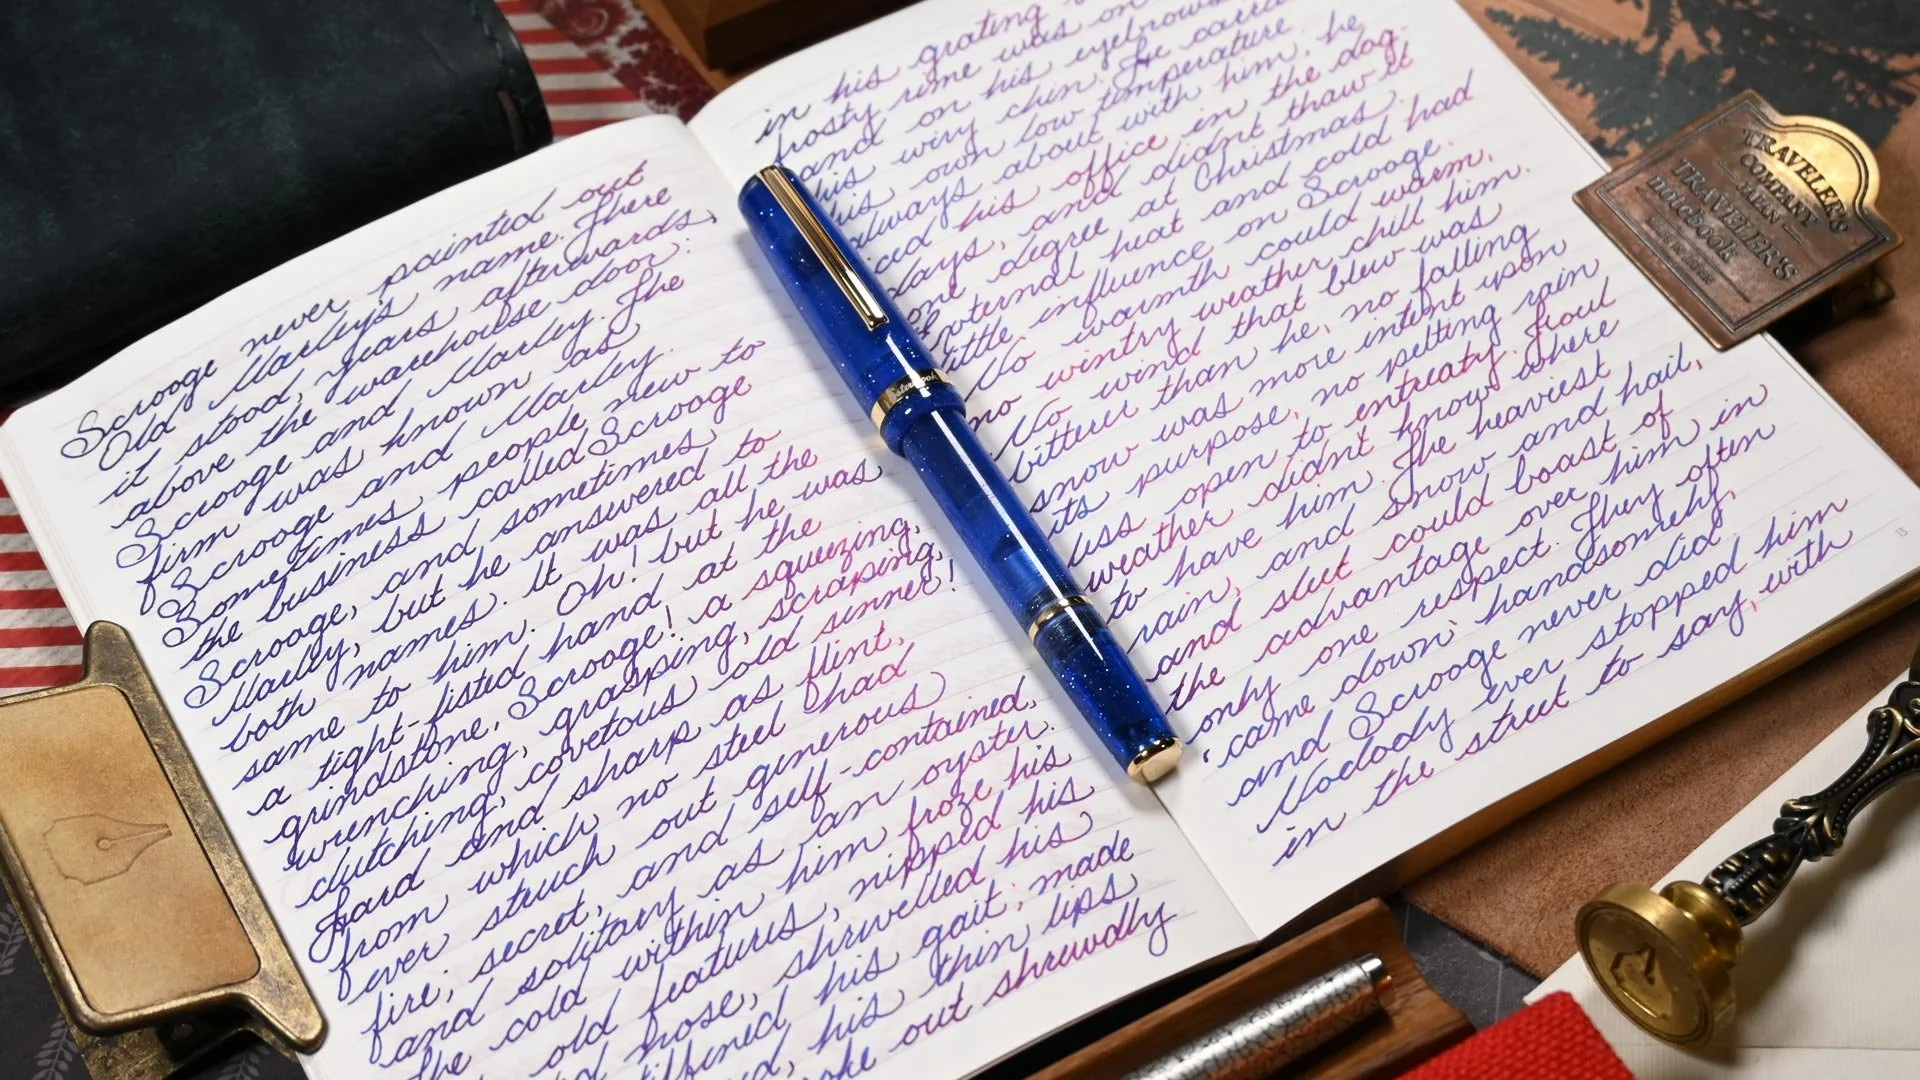 Scrooge never painted out
Old Marley's name. There
it stood, years afterwards,
above the warehouse door:
Scrooge and Marley. The
firm was known as
Scrooge and Marley.
Sometimes people new to
the business called Scrooge
Scrooge, and sometimes
Marley, but he answered to
both names. It was all the
same to him. Oh! but he was
a tight-fisted hand at the
grindstone, Scrooge! a squeezing,
wrenching, grasping, scraping,
clutching, covetous old sinner!
Hard and sharp as flint,
from which no steel had
ever struck out generous
fire, secret, and self-contained,
and solitary as an oyster.
The cold within him froze his
old features, nipped his
nose, shrivelled his
his gait; made
his thin lips
out shrewdly
in his grating
frosty rime was on
and on his eyebrows
his wiry chin. He carried
his own low temperature
always about with him, he
iced his office in the dog
days, and didnt thaw it
one degree at Christmas.
External heat and cold had
little influence on Scrooge.
No warmth could warm,
no wintry weather chill him.
No wind that blew was
bitterer than he, no falling
snow was more intent upon
its purpose, no pelting rain
less open to entreaty. Foul
weather didnt know where
to have him. The heaviest
rain, and snow and hail,
and sleet could boast of
the advantage over him in
only one respect. They often
'came down' handsomely,
and Scrooge never did.
Nobody ever stopped him
in the street to say, with
Esterbrook
TRAVELER'S
COMPANY
JAPAN
TRAVELER'S
notebook
13